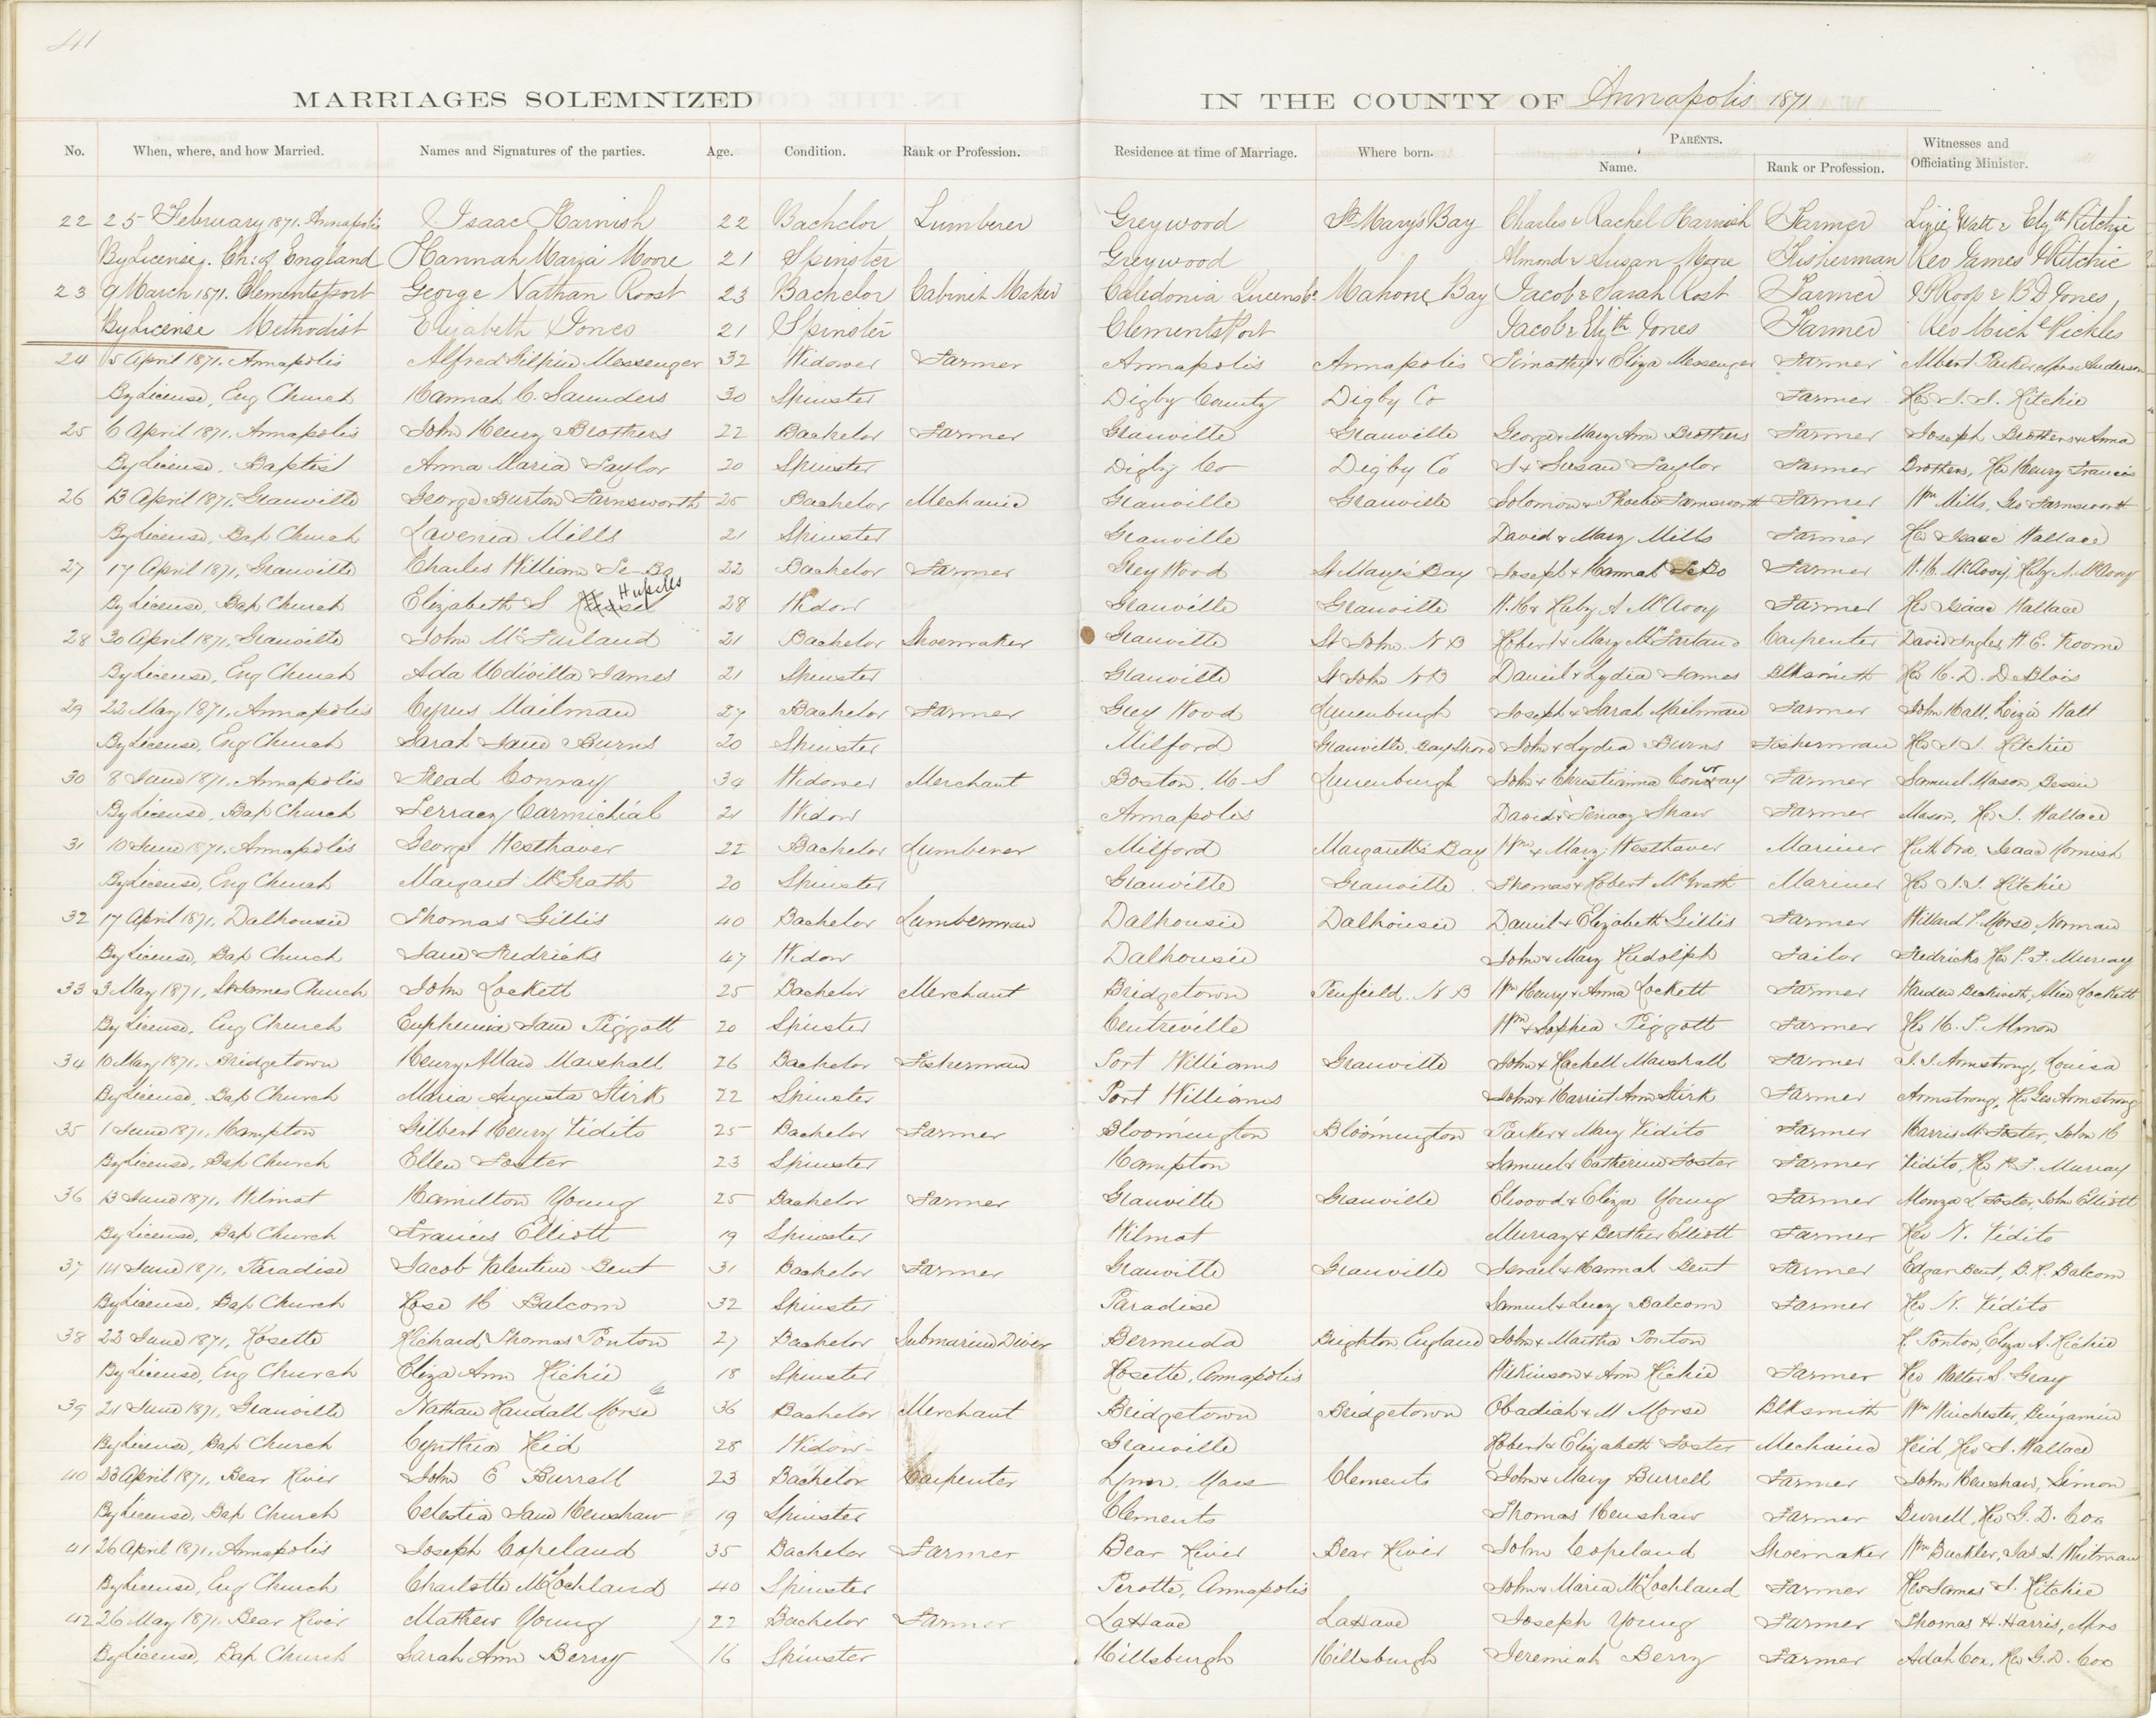 41
MARRIAGES SOLEMNIZED IN THE COUNTY OF Annapolis 1871
PARENTS.
No. When, where, and how Married. Names and Signatures of the parties. Age. Condition. Rank or Profession. Residence at time of Marriage. Where born. Name. Rank or Profession. Witnesses and Officiating Minister.
22 25 February 1871. Annapolis Isaac Harnish 22 Bachelor Lumberer Greywood St Mary's Bay Charles & Rachel Harnish Farmer Lizie Hall & Elyth Ritchie
By License. Ch: of England Hannah Maria Moore 21 Spinster Greywood Almond & Susan Moore Fisherman Rev James J Ritchie
23 9 March 1871. Clementsport George Nathan Roost 23 Bachelor Cabinet Maker Caledonia Queens Co Mahone Bay Jacob & Sarah Rost Farmer Roop & B D Jones,
By License Methodist Elizabeth Jones 21 Spinster ClementsPort Jacob & Elizth Jones Farmer Rev Michl Pickles
24 5 April 1871. Annapolis Alfred Gilpin Messenger 32 Widower Farmer Annapolis Annapolis Timothy & Eliza Messenger Farmer Albert Parker, Anderson
By License, Eng Church Hannah C. Saunders 30 Spinster Digby County Digby Co Farmer Rev J. J. Ritchie
25 6 April 1871. Annapolis John Henry Brothers 22 Bachelor Farmer Granville Granville George & Mary Ann Brothers Farmer Joseph Brothers & Anna
By License, Baptist Anna Maria Taylor 20 Spinster Digby Co Digby Co J & Susan Taylor Farmer Brothers, Rev Henry Francis
26 13 April 1871, Granville George Burton Farnsworth 25 Bachelor Mechanic Granville Granville Solomon & Phoebe Farnsworth Farmer Wm Mills, Geo Farnsworth
By License, Bap Church Lavenia Mills 21 Spinster Granville David & Mary Mills Farmer Rev Isaac Wallace
27 17 April 1871, Granville Charles William Le Bo 22 Bachelor Farmer Grey Wood St Mary's Bay Joseph & Hannah LeBo Farmer W. H. McAvoy, Ruby A. McAvoy
By License, Bap Church Elizabeth S 28 Widow Granville Granville W. H & Ruby A McAvoy Farmer Rev Isaac Wallace
28 30 April 1871, Granville John McFarland 21 Bachelor Shoemaker Granville St John. N B Robert & Mary McFarland Carpenter David Ingles, W. E. Roome
By License, Eng Church Ada Udivilla James 21 Spinster Granville St John N B Daniel & Lydia James Blksmith Rev H. D. DeBlois
29 22 May 1871, Annapolis Cyrus Mailman 27 Bachelor Farmer Grey Wood Lunenburgh Joseph & Sarah Mailman Farmer John Hall, Lizie Hall
By License, Eng Church Sarah Jane Burns 20 Spinster Milford Granville, Bay Shore John & Lydia Burns Fisherman Rev J. J. Ritchie
30 8 June 1871. Annapolis Stead Conray 34 Widower Merchant Boston. U. S Lunenburgh John & Christianna Conray Farmer Samuel Mason, Bessie
By License, Bap Church Serracy Carmichial 21 Widow Annapolis David & Senacy Shaw Farmer Mason, Rev I. Wallace
31 10 June 1871. Annapolis George Westhaver 22 Bachelor Lumberer Milford Margaretts Bay Wm & Mary Westhaver Mariner Isaac Hornish
By License, Eng Church Margaret McGrath 20 Spinster Granville Granville Thomas & Robert McGrath Mariner Rev J. J. Ritchie
32 17 April 1871, Dalhousie Thomas Gillis 40 Bachelor Lumberman Dalhousie Dalhousie Daniel & Elizabeth Gillis Farmer Willard P. Morse, Norman
By License, Bap Church Jane Fredricks 47 Widow Dalhousie John & Mary Rudolph Tailor Fredricks Rev P. F. Murray
33 3 May 1871, St James Church John Lockett 25 Bachelor Merchant Bridgetown Penfield. N B Wm Henry & Anna Lockett Farmer Harden Beckwith, Alice Lockett
By License, Eng Church Euphemia Jane Piggott 20 Spinster Centreville Wm & Sophia Piggott Farmer Rev H. P. Almon
34 10 May 1871. Bridgetown Henry Allan Marshall 26 Bachelor Fisherman Port Williams Granville John & Rachell Marshall Farmer J. J. Armstrong, Louisa
By License, Bap Church Maria Augusta Stirk 22 Spinster Port Williams John & Harriet Ann Stirk Farmer Armstrong, Rev Geo Armstrong
35 1 June 1871, Hampton Gilbert Henry Vidito 25 Bachelor Farmer Bloomington Bloomington Parker & Mary Vidito Farmer Harris M Foster, John H
By License, Bap Church Ellen Foster 23 Spinster Hampton Samuel & Catherine Foster Farmer Vidito, Rev P. F. Murray
36 13 June 1871, Wilmot Hamilton Young 25 Bachelor Farmer Granville Granville Elwood & Eliza Young Farmer Alonza L Foster, John Elliott
By License, Bap Church Francis Elliott 19 Spinster Wilmot Murray & Berther Elliott Farmer Rev N. Vidito
37 14 June 1871, Paradise Jacob Valentine Bent 31 Bachelor Farmer Granville Granville Israel & Hannah Bent Farmer Edgar Bent, B. R. Balcom
By License, Bap Church Rose H Balcom 32 Spinster Paradise Samuel & Lucy Balcom Farmer Rev N. Vidito
38 22 June 1871, Rosette Richard Thomas Ponton 27 Bachelor Submarine Diver Bermuda Brighton England John & Martha Ponton R. Ponton, Eliza A. Richie
By License, Eng Church Eliza Ann Richie 18 Spinster Rosette, Annapolis Wilkinson & Ann Richie Farmer Rev Walter S. Gray
39 21 June 1871, Granville Nathan Randall Morse 36 Bachelor Merchant Bridgetown Bridgetown Obadiah & M Morse Blksmith Wm Winchester, Benjamin
By License, Bap Church Cynthia Reid 28 Widow Granville Robert & Elizabeth Foster Mechanic Reid, Rev I. Wallace
40 23 April 1871, Bear River John E Burrell 23 Bachelor Carpenter Lynn, Mass Clements John & Mary Burrell Farmer John Henshaw, Simon
By License, Bap Church Celestia Jane Henshaw 19 Spinster Clements Thomas Henshaw Farmer Burrell, Rev G. D. Cox
41 26 April 1871, Annapolis Joseph Copeland 35 Bachelor Farmer Bear River Bear River John Copeland Shoemaker Wm Buckler, Jas S. Whitman
By License, Eng Church Charlotte McLochland 40 Spinster Perotte, Annapolis John & Maria McLochland Farmer Rev James J. Ritchie
42 26 May 1871. Bear River Mathew Young 22 Bachelor Farmer LaHave LaHave Joseph Young Farmer Thomas H. Harris, Mrs
By License, Bap Church Sarah Ann Berry 16 Spinster Hillsburgh Hillsburgh Jeremiah Berry Farmer Adah Cox, Rev G. D. Cox